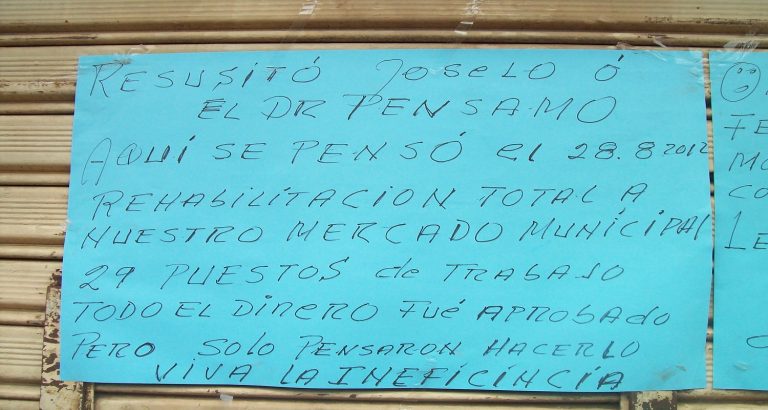 RESUSITÓ JOSELO Ó
EL DR PENSAMO
AQUÍ SE PENSÓ el 28.8 2012
REHABILITACION TOTAL A
NUESTRO MERCADO MUNICIPAL
29 PUESTOS de TRABAJO
TODO EL DINERO FUÉ APROBADO
PERO SOLO PENSARON HACERLO
VIVA LA INEFICINCIA
FE
MO
CO
1E